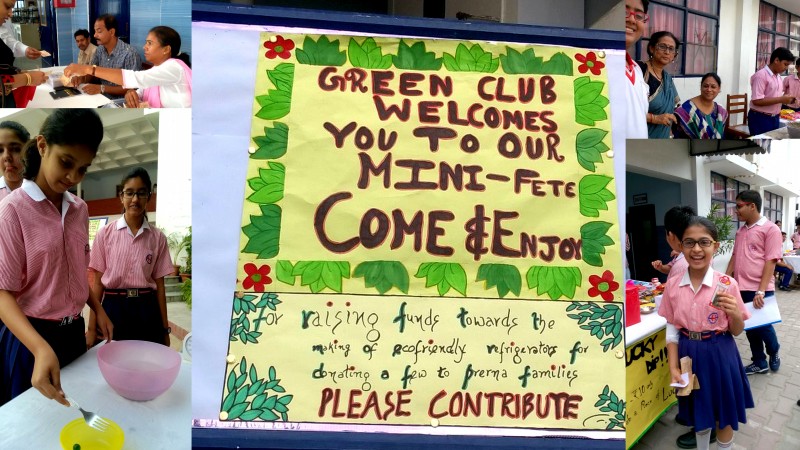 GREEN CLUB
WELCOMES
YOU TO OUR
MINI-FETE
COME & ENJOY
for raising funds towards the
making of ecofriendly refrigerators for
donating a few to prerna families
PLEASE CONTRIBUTE
LUCKY
DIP!!